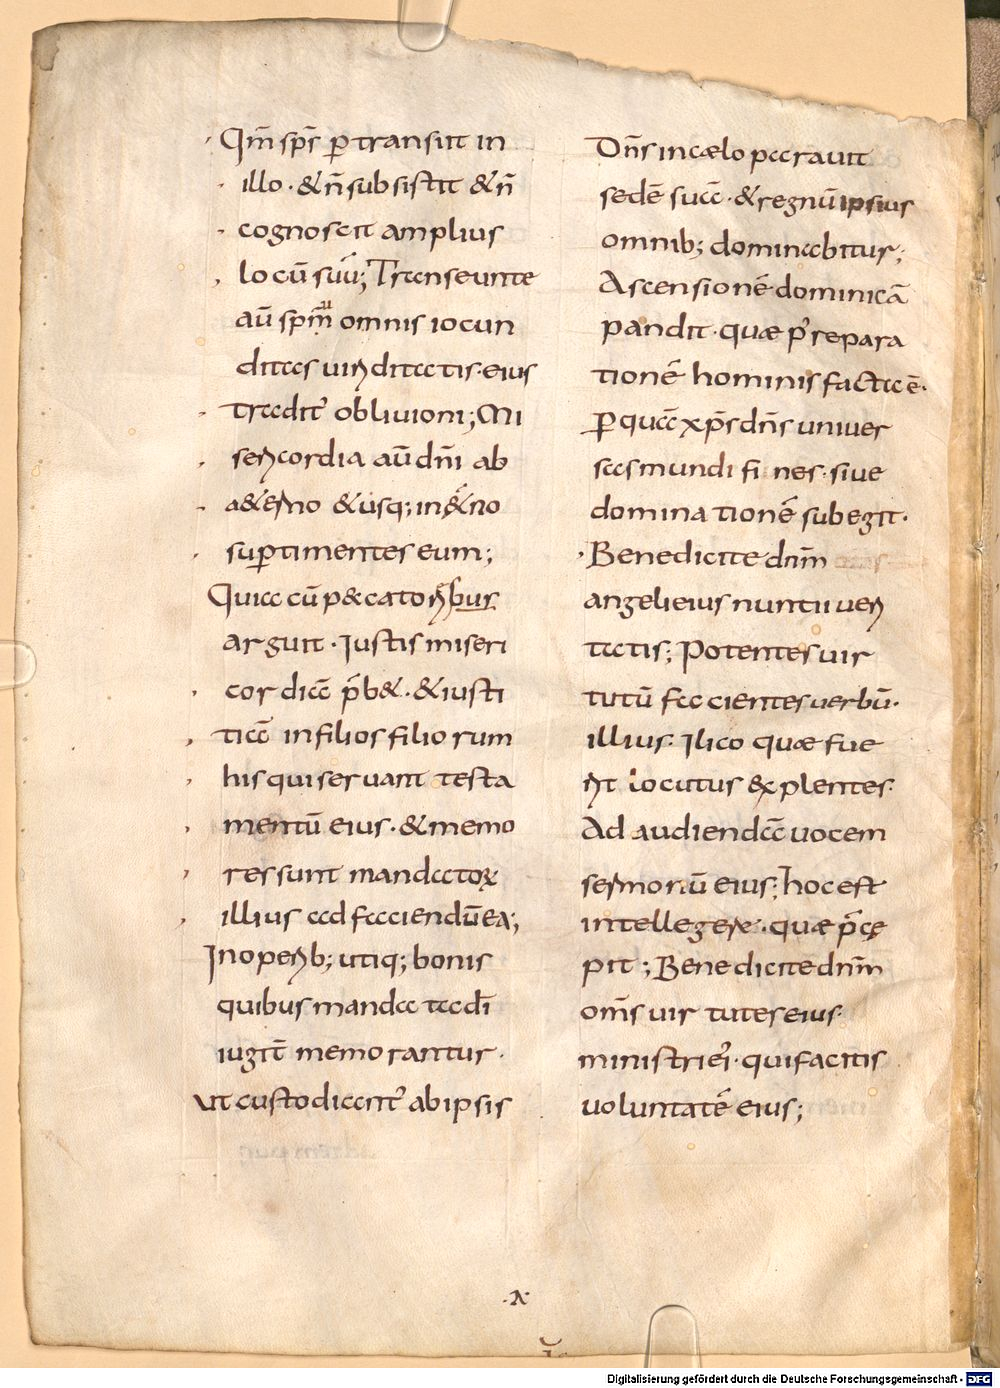 Qm̄ sp̄s ꝑtransiit in
illo · &n̄ subsistit &n̄
cognoscit amplius
locū suū; Transeunte
aū sp̄m omnis iocun
ditas uiriditatis · eius
traditˀ obliuioni; Mi
sericordia aū dn̄i ab
a&erno &usq; in&erno
suꝑ timentes eum;
Quia cū p&catoribus
arguit · Iustis miseri
cordiā p̄b& · &iusti
tiā infilios filiorum
his qui seruant testa
mentū eius · &memo
res sunt mandatoꝝ
illius ad faciendū ea;
In operib; utiq; bonis
quibus mandata dī
iugit̄ memorantur ·
ut custodiantˀ abipsis
Dn̄s incælo parauit
sedē suā · &regnū ipsius
omnib; dominabitur;
Ascensionē dominicā
pandit · quæ p̄ repara
tionē hominis facta ē ·
ꝑ quā xp̄s dn̄s uniuer
sas mundi fines · siue
dominationē subegit ·
Benedicite dn̄m
angeli eius nuntii ueri
tatis; Potentes uir
tutū facientes uerbū ·
illius · Ilico quæ fue
rit locutus explentes ·
Ad audiendā uocem
sermonū eius; hoc est
intellegere · quæ p̄cę
pit; Benedicite dn̄m
om̄s uirtutes eius ·
ministri ei' · qui facitis
voluntatē eius;
· λ ·
Digitalisierung gefördert durch die Deutsche Forschungsgemeinschaft - DFG